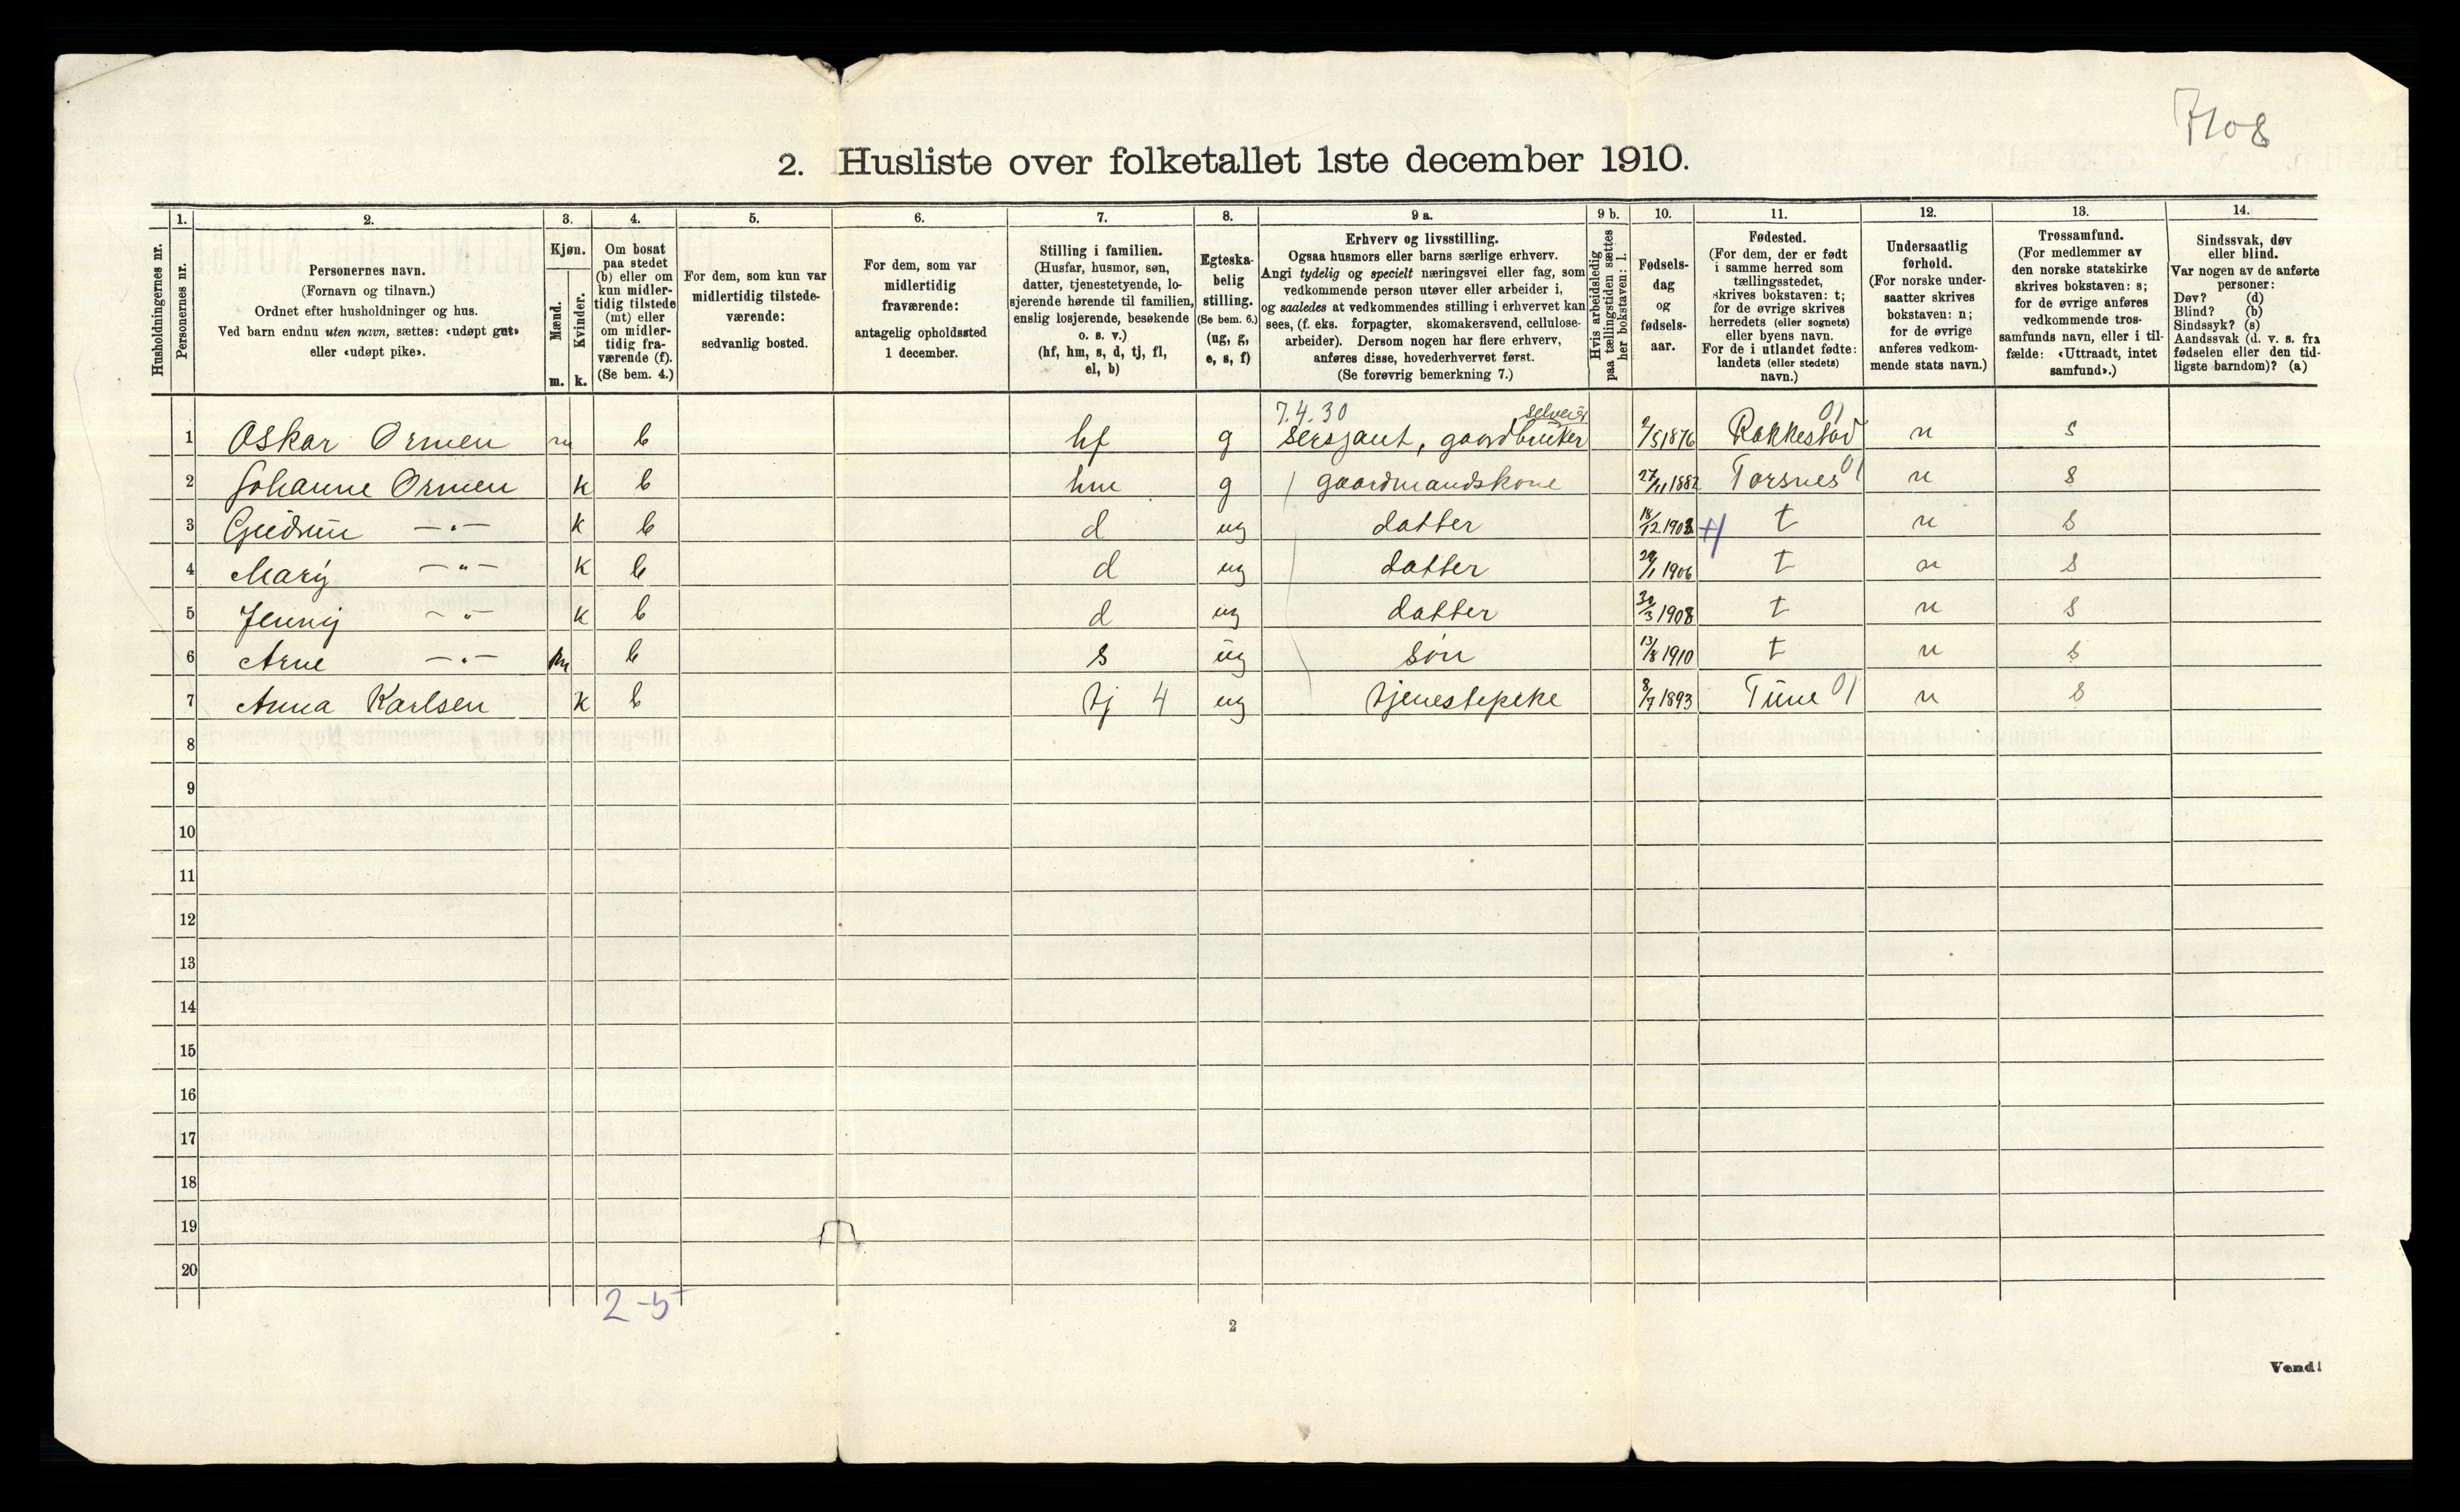 7108
2. Husliste over folketallet 1ste december 1910.
Husholdningernes nr.
1. Personernes nr.
2. Personernes navn.
(Fornavn og tilnavn.)
Ordnet efter husholdninger og hus.
Ved barn endnu uten navn, sættes: «udøpt gut»
eller «udøpt pike».
3. Kjøn.
Mænd. m.
Kvinder. k.
4. Om bosat
paa stedet
(b) eller om
kun midler-
tidig tilstede
(mt) eller
om midler-
tidig fra-
værende (f).
(Se bem. 4.)
5. For dem, som kun var
midlertidig tilstede-
værende:
sedvanlig bosted.
6. For dem, som var
midlertidig
fraværende:
antagelig opholdssted
1 december.
7. Stilling i familien.
(Husfar, husmor, søn,
datter, tjenestetyende, lo-
sjerende hørende til familien,
enslig losjerende, besøkende
o. s. v.)
(hf, hm, s, d, tj, fl,
el, b)
8. Egteska-
belig
stilling.
(Se bem. 6.)
(ug, g,
e, s, f)
9 a. Erhverv og livsstilling.
Ogsaa husmors eller barns særlige erhverv.
Angi tydelig og specielt næringsvei eller fag, som
vedkommende person utøver eller arbeider i,
og saaledes at vedkommendes stilling i erhvervet kan
sees, (f. eks. forpagter, skomakersvend, cellulose-
arbeider). Dersom nogen har flere erhverv,
anføres disse, hovederhvervet først.
(Se forøvrig bemerkning 7.)
9 b. Hvis arbeidsledig
paa tællingstiden sættes
her bokstaven: l.
10. Fødsels-
dag
og
fødsels-
aar.
11. Fødested.
(For dem, der er født
i samme herred som
tællingsstedet,
skrives bokstaven: t;
for de øvrige skrives
herredets (eller sognets)
eller byens navn.
For de i utlandet fødte:
landets (eller stedets)
navn.)
12. Undersaatlig
forhold.
(For norske under-
saatter skrives
bokstaven: n;
for de øvrige
anføres vedkom-
mende stats navn.)
13. Trossamfund.
(For medlemmer av
den norske statskirke
skrives bokstaven: s;
for de øvrige anføres
vedkommende tros-
samfunds navn, eller i til-
fælde: «Uttraadt, intet
samfund».)
14. Sindssvak, døv
eller blind.
Var nogen av de anførte
personer:
Døv? (d)
Blind? (b)
Sindssyk? (s)
Aandssvak (d. v. s. fra
fødselen eller den tid-
ligste barndom)? (a)
7.4.30 selveier 01
1 Oskar Ormen m b hf g Sersjant, gaardbruker 9/5 1876 Rakkestad n s
2 Johanne Ormen k b hm g gaardmandskone 27/11 1882 Torsnes 01 n s
3 Gudrun —"— k b d ug datter 18/12 1903 t n s
4 Mary —"— k b d ug datter 29/1 1906 t n s
5 Jenny —"— k b d ug datter 30/3 1908 t n s
6 Arne —"— m b s ug søn 13/8 1910 t n s
7 Anna Karlsen k b tj 4 ug tjenestepike 8/7 1893 Tune 01 n s
8
9
10
11
12
13
14
15
16
17
18
19
20
2-5
2
Vend!